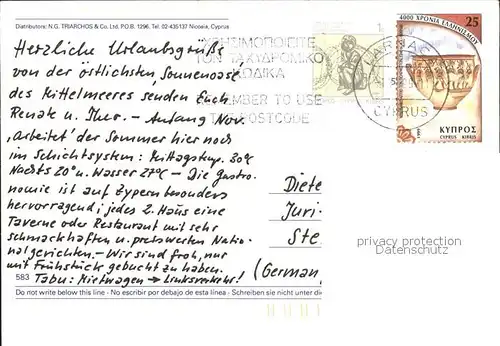 Distributors: N.G. TRIARCHOS & Co. Ltd. P.O.B. 1296, Tel. 02-435137 Nicosia, Cyprus
Herzliche Urlaubsgrüße
von der östlichsten Sonnenoase
des Mittelmeeres senden Euch
Renate u. – Anfang Nov.
„Arbeitet" der Sommer hier noch
im Schichtsystem: Mittagstemp. 30°
Nachts 20° u. Wasser 27°C – Die Gastro-
nomie ist auf Zypern besonders
hervorragend; jedes 2. Haus eine
Taverne oder Restaurant mit sehr
schmackhaften u. preiswerten Natio-
nalgerichten. – Wir sind froh, nur
mit Frühstück gebucht zu haben.
Tabu: Mietwagen → Linksverkehr!
583
Do not write below this line - No escribir por debajo de esta línea - Schreiben sie nicht unter di
ΧΡΗΣΙΜΟΠΟΙΕΙΤΕ
ΤΟΝ ΤΑΧΥΔΡΟΜΙΚΟ
ΚΩΔΙΚΑ
REMEMBER TO USE
THE POSTCODE
LARNAC
CYPRUS
4000 ΧΡΟΝΙΑ ΕΛΛΗΝΙΣΜΟΥ
25
ΚΥΠΡΟΣ
CYPRUS KIBRIS
Diete
Juri-
Ste
(German
privacy protection
watermark